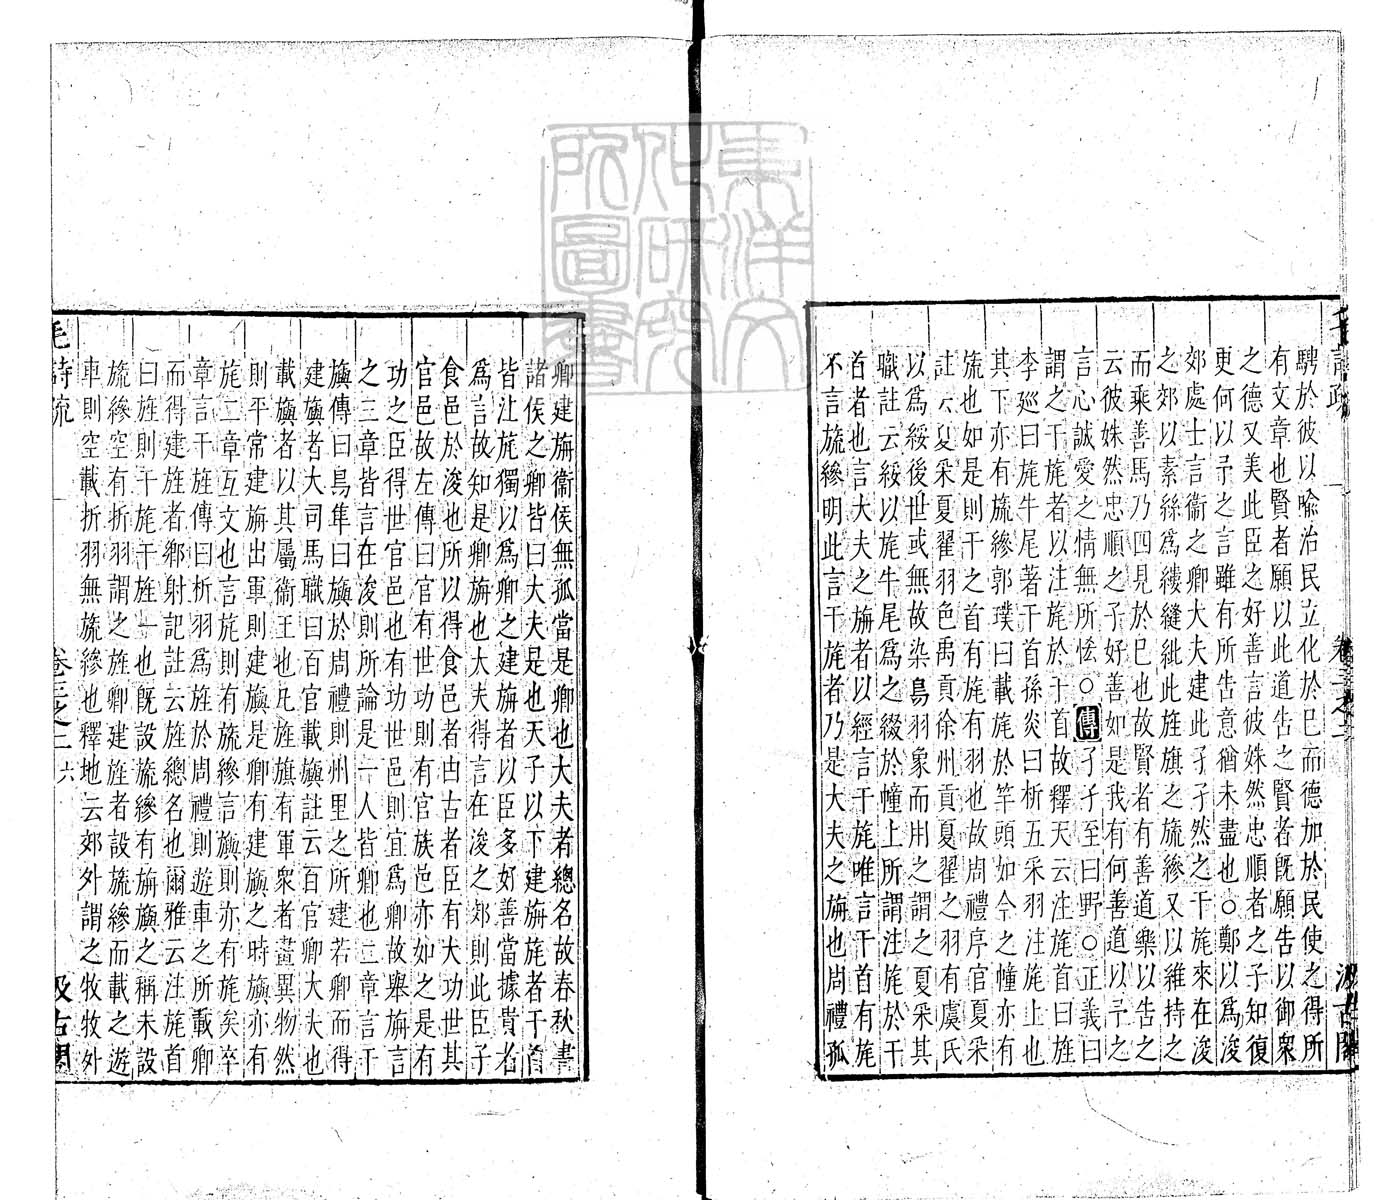 騁於彼以喩治民立化於巳而德加於民使之得所
有文章也賢者願以此道告之賢者旣願告以御衆
之德又美此臣之好善言彼姝然忠順者之子知復
更何以予之言雖有所告意猶未盡也○鄭以爲浚
郊處士言衞之卿大夫建此孑孑然之干旄來在浚
之郊以素絲爲縷縫紕此旌旗之旒縿又以維持之
而乘善馬乃四見於巳也故賢者有善道樂以告之
云彼姝然忠順之子好善如是我有何善道以予之
言心誠愛之情無所恡○傳孑孑至曰野○正義曰
謂之干旄者以注旄於干首故釋天云注旄首曰旌
李廵曰旄牛尾著干首孫炎曰析五采羽注旄上也
其下亦有旒縿郭璞曰載旄於竿頭如今之幢亦有
旒也如是則干之首有旄有羽也故周禮序官夏采
註云夏采夏翟羽色禹貢徐州貢夏翟之羽有虞氏
以爲綏後世或無故染鳥羽象而用之謂之夏采其
職註云綏以旄牛尾爲之綴於幢上所謂注旄於干
首者也言大夫之旃者以經言干旄唯言干首有旄
不言旒縿明此言干旄者乃是大夫之旃也周禮孤
卿建旃衞侯無孤當是卿也大夫者總名故春秋書
諸侯之卿皆曰大夫是也天子以下建旃旄者干首
皆注旄獨以爲卿之建旃者以臣多好善當據貴者
爲言故知是卿旃也大夫得言在浚之郊則此臣子
食邑於浚也所以得食邑者由古者臣有大功世其
官邑故左傳曰官有世功則有官族邑亦如之是有
功之臣得世官邑也有功世邑則宜爲卿故舉旃言
之三章皆言在浚則所論是一人皆卿也二章言干
旟傳曰鳥隼曰旟於周禮則州里之所建若卿而得
建旟者大司馬職曰百官載旟註云百官卿大夫也
載旟者以其屬衞王也凡旌旗有軍衆者畫異物然
則平常建旃出軍則建旟是卿有建旟之時旟亦有
旄二章互文也言旄則有旒縿言旟則亦有旄矣卒
章言干旌傳曰析羽爲旌於周禮則遊車之所載卿
而得建旌者鄕射記註云旌總名也爾雅云注旄首
曰旌則干旄干旌一也旣設旒縿有旃旟之稱未設
旒縿空有折羽謂之旌卿建旌者設旒縿而載之遊
車則空載折羽無旒縿也釋地云郊外謂之牧牧外
毛詩疏
卷三之二
六
汲古閣